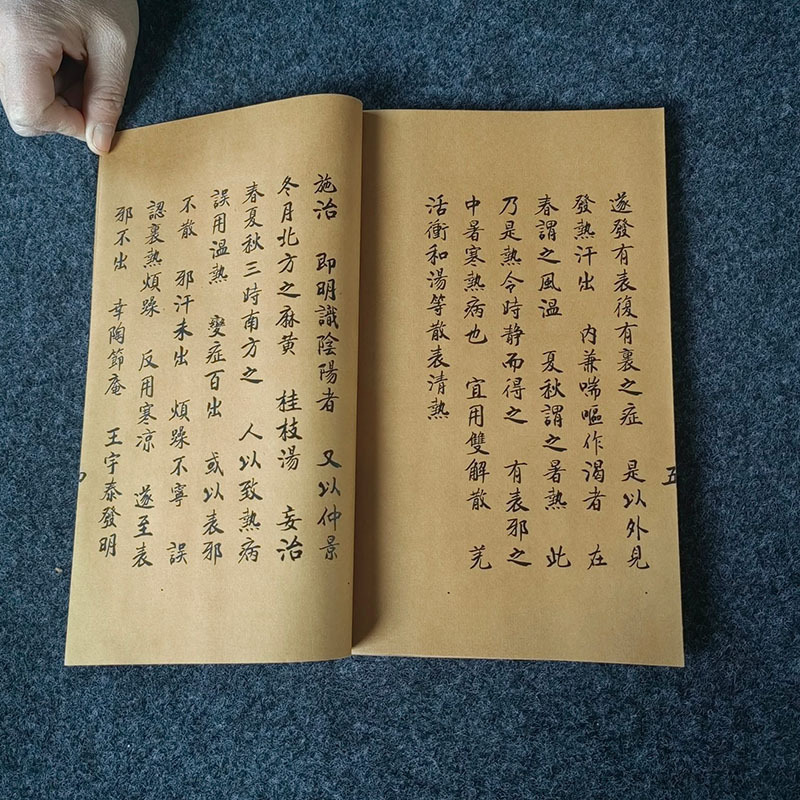 遂發有表復有裏之症　是以外見
發熱汗出　內兼喘嘔作渴者　在
春謂之風溫　夏秋謂之暑熱　此
乃是熱令時静而得之　有表邪之
中暑寒熱病也　宜用雙解散　羌
活衝和湯等散表清熱
五
施治　即明識陰陽者　又以仲景
冬月北方之麻黄　桂枝湯　妄治
春夏秋三時南方之　人以致熱病
誤用溫熱　變症百出　或以表邪
不散　邪汗未出　煩躁不寧　誤
認裏熱煩躁　反用寒涼　遂至表
邪不出　幸陶節庵　王宇泰發明